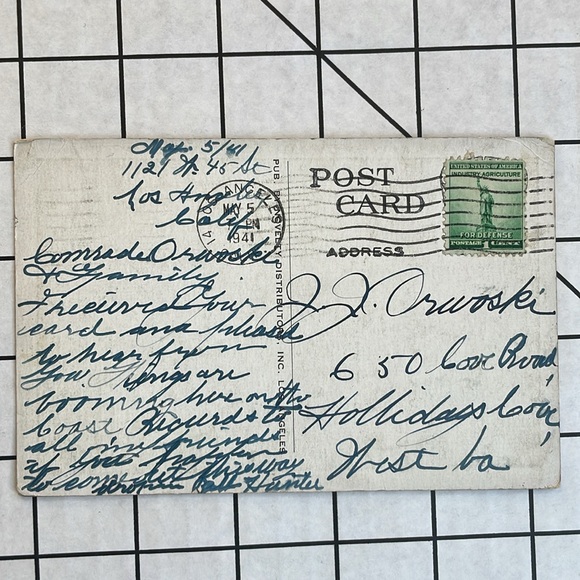 May 5/41
1121 W. 45 St
Los Angeles
Calif
Comrade Orwoski
& Family
I recieved your
card and pleased
to hear from
you. Things are
booming here on the
Coast Regards to
all my friends
if you happen
to come out this way
Hunter
LOS ANGELES
MAY 5
PM
1941
CALIF.
PUB. BY NOVELTY DISTRIBUTORS, INC. LOS ANGELES
POST
CARD
ADDRESS
UNITED STATES OF AMERICA
INDUSTRY AGRICULTURE
FOR DEFENSE
POSTAGE 1 CENT
J. X. Orwoski
650 Cove Road
Hollidays Cove
West Va